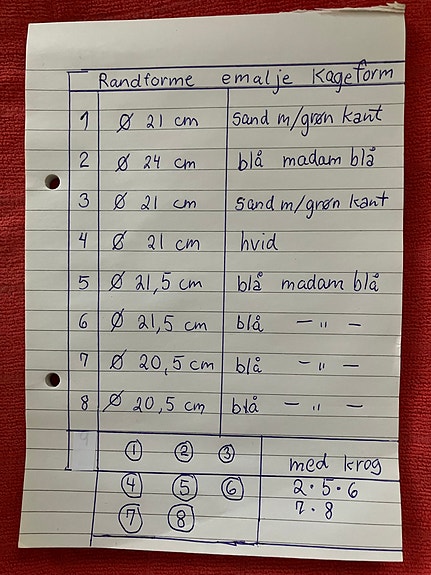 Randforme emalje Kageform
1 Ø 21 cm sand m/grøn kant
2 Ø 24 cm blå madam blå
3 Ø 21 cm sand m/grøn kant
4 Ø 21 cm hvid
5 Ø 21,5 cm blå madam blå
6 Ø 21,5 cm blå — " —
7 Ø 20,5 cm blå — " —
8 Ø 20,5 cm blå — " —
① ② ③
med krog
④ ⑤ ⑥ 2 · 5 · 6
⑦ ⑧ 7 · 8